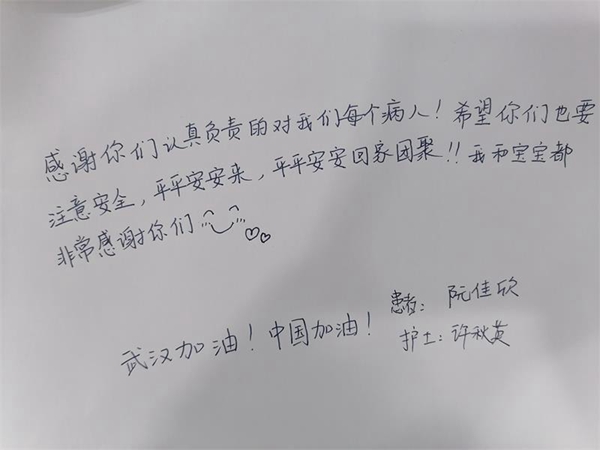 感谢你们认真负责的对我们每个病人！希望你们也要
注意安全，平平安安来，平平安安回家团聚!! 我和宝宝都
非常感谢你们
武汉加油！中国加油！
患者：阮佳欣
护士：许秋英